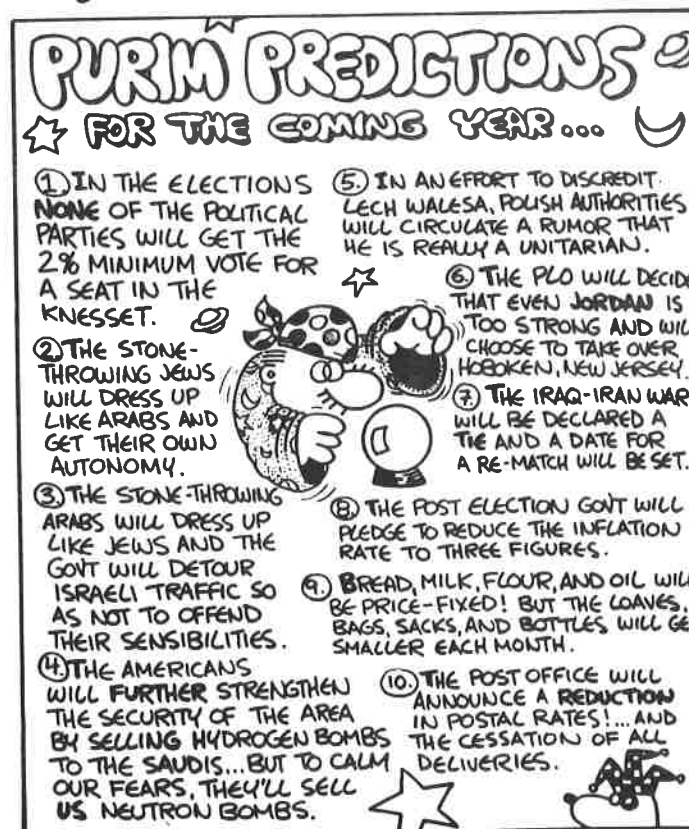 PURIM PREDICTIONS
FOR THE COMING YEAR...
1. IN THE ELECTIONS
NONE OF THE POLITICAL
PARTIES WILL GET THE
2% MINIMUM VOTE FOR
A SEAT IN THE
KNESSET.
2. THE STONE-
THROWING JEWS
WILL DRESS UP
LIKE ARABS AND
GET THEIR OWN
AUTONOMY.
3. THE STONE-THROWING
ARABS WILL DRESS UP
LIKE JEWS AND THE
GOVT WILL DETOUR
ISRAELI TRAFFIC SO
AS NOT TO OFFEND
THEIR SENSIBILITIES.
4. THE AMERICANS
WILL FURTHER STRENGTHEN
THE SECURITY OF THE AREA
BY SELLING HYDROGEN BOMBS
TO THE SAUDIS...BUT TO CALM
OUR FEARS, THEY'LL SELL
US NEUTRON BOMBS.
5. IN AN EFFORT TO DISCREDIT
LECH WALESA, POLISH AUTHORITIES
WILL CIRCULATE A RUMOR THAT
HE IS REALLY A UNITARIAN.
6. THE PLO WILL DECIDE
THAT EVEN JORDAN IS
TOO STRONG AND WILL
CHOOSE TO TAKE OVER
HOBOKEN, NEW JERSEY.
7. THE IRAQ-IRAN WAR
WILL BE DECLARED A
TIE AND A DATE FOR
A RE-MATCH WILL BE SET.
8. THE POST ELECTION GOVT WILL
PLEDGE TO REDUCE THE INFLATION
RATE TO THREE FIGURES.
9. BREAD, MILK, FLOUR, AND OIL WILL
BE PRICE-FIXED! BUT THE LOAVES,
BAGS, SACKS, AND BOTTLES WILL GE
SMALLER EACH MONTH.
10. THE POST OFFICE WILL
ANNOUNCE A REDUCTION
IN POSTAL RATES!...AND
THE CESSATION OF ALL
DELIVERIES.